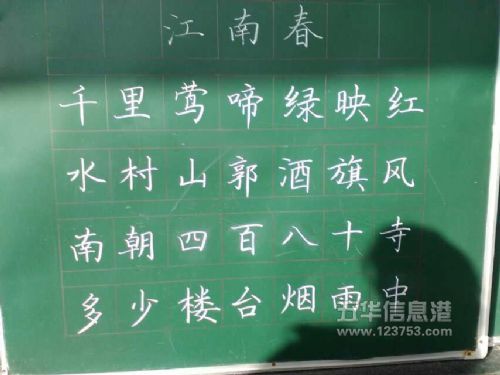 江南春
千里莺啼绿映红
水村山郭酒旗风
南朝四百八十寺
多少楼台烟雨中
五华信息港
www.123753.com